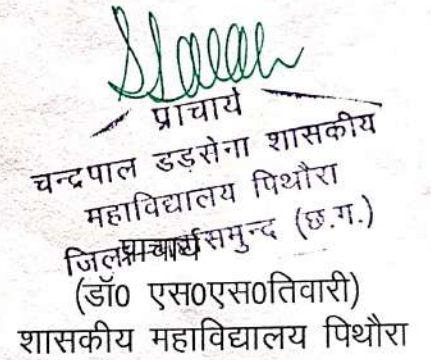 प्राचार्य
चन्द्रपाल डड़सेना शासकीय
महाविद्यालय पिथौरा
जिला-महासमुन्द (छ.ग.)
प्राचार्य
(डॉ0 एस0एस0तिवारी)
शासकीय महाविद्यालय पिथौरा